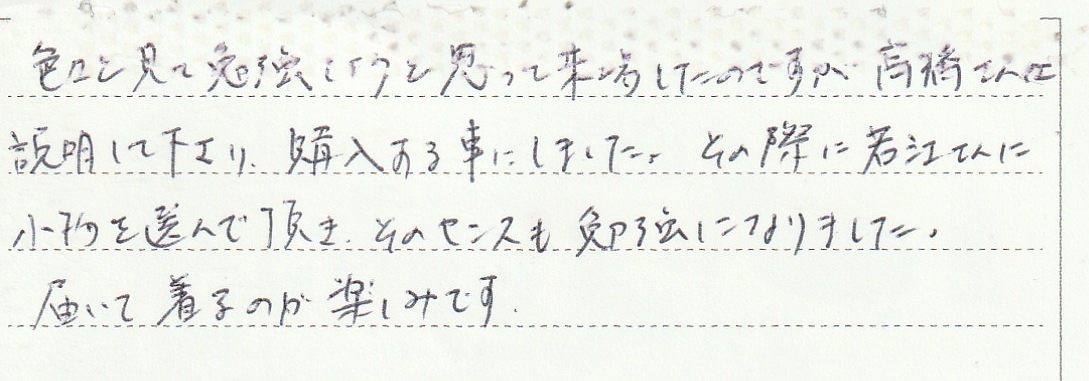 色々と見て勉強しようと思って来場したのですが高橋さんに
説明して下さり、購入する事にしました。その際に若江さんに
小物を選んで頂き、そのセンスも勉強になりました。
届いて着るのが楽しみです.